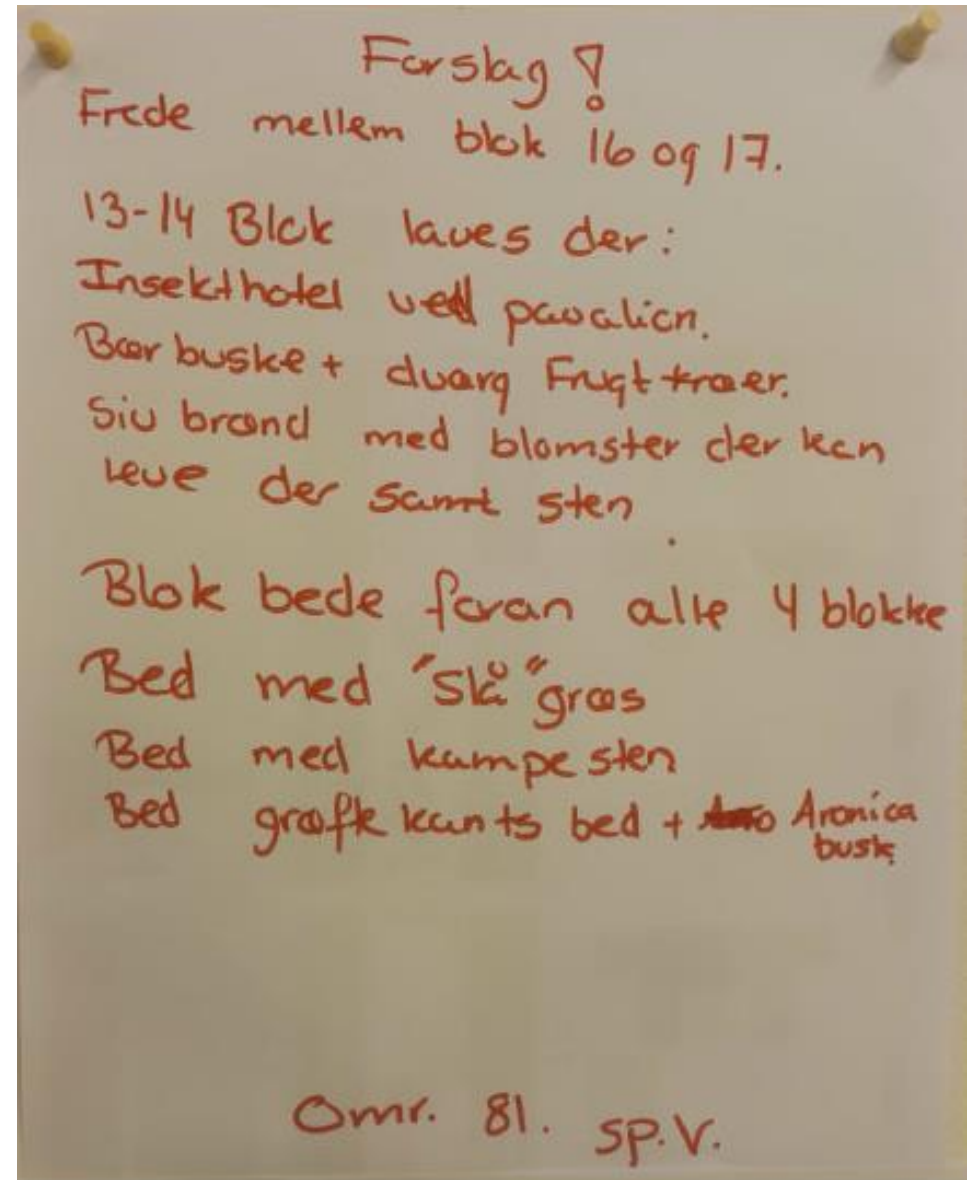 Forslag !
Frede mellem blok 16 og 17.
13-14 Blok laves der:
Insekthotel ved pavalion.
Bær buske + dværg Frugt træer.
Siv brønd med blomster der kan
leve der samt sten.
Blok bede foran alle 4 blokke
Bed med "Slå" græs
Bed med kampesten
Bed grøftekants bed + Aronica
busk
Omr. 81. SP.V.